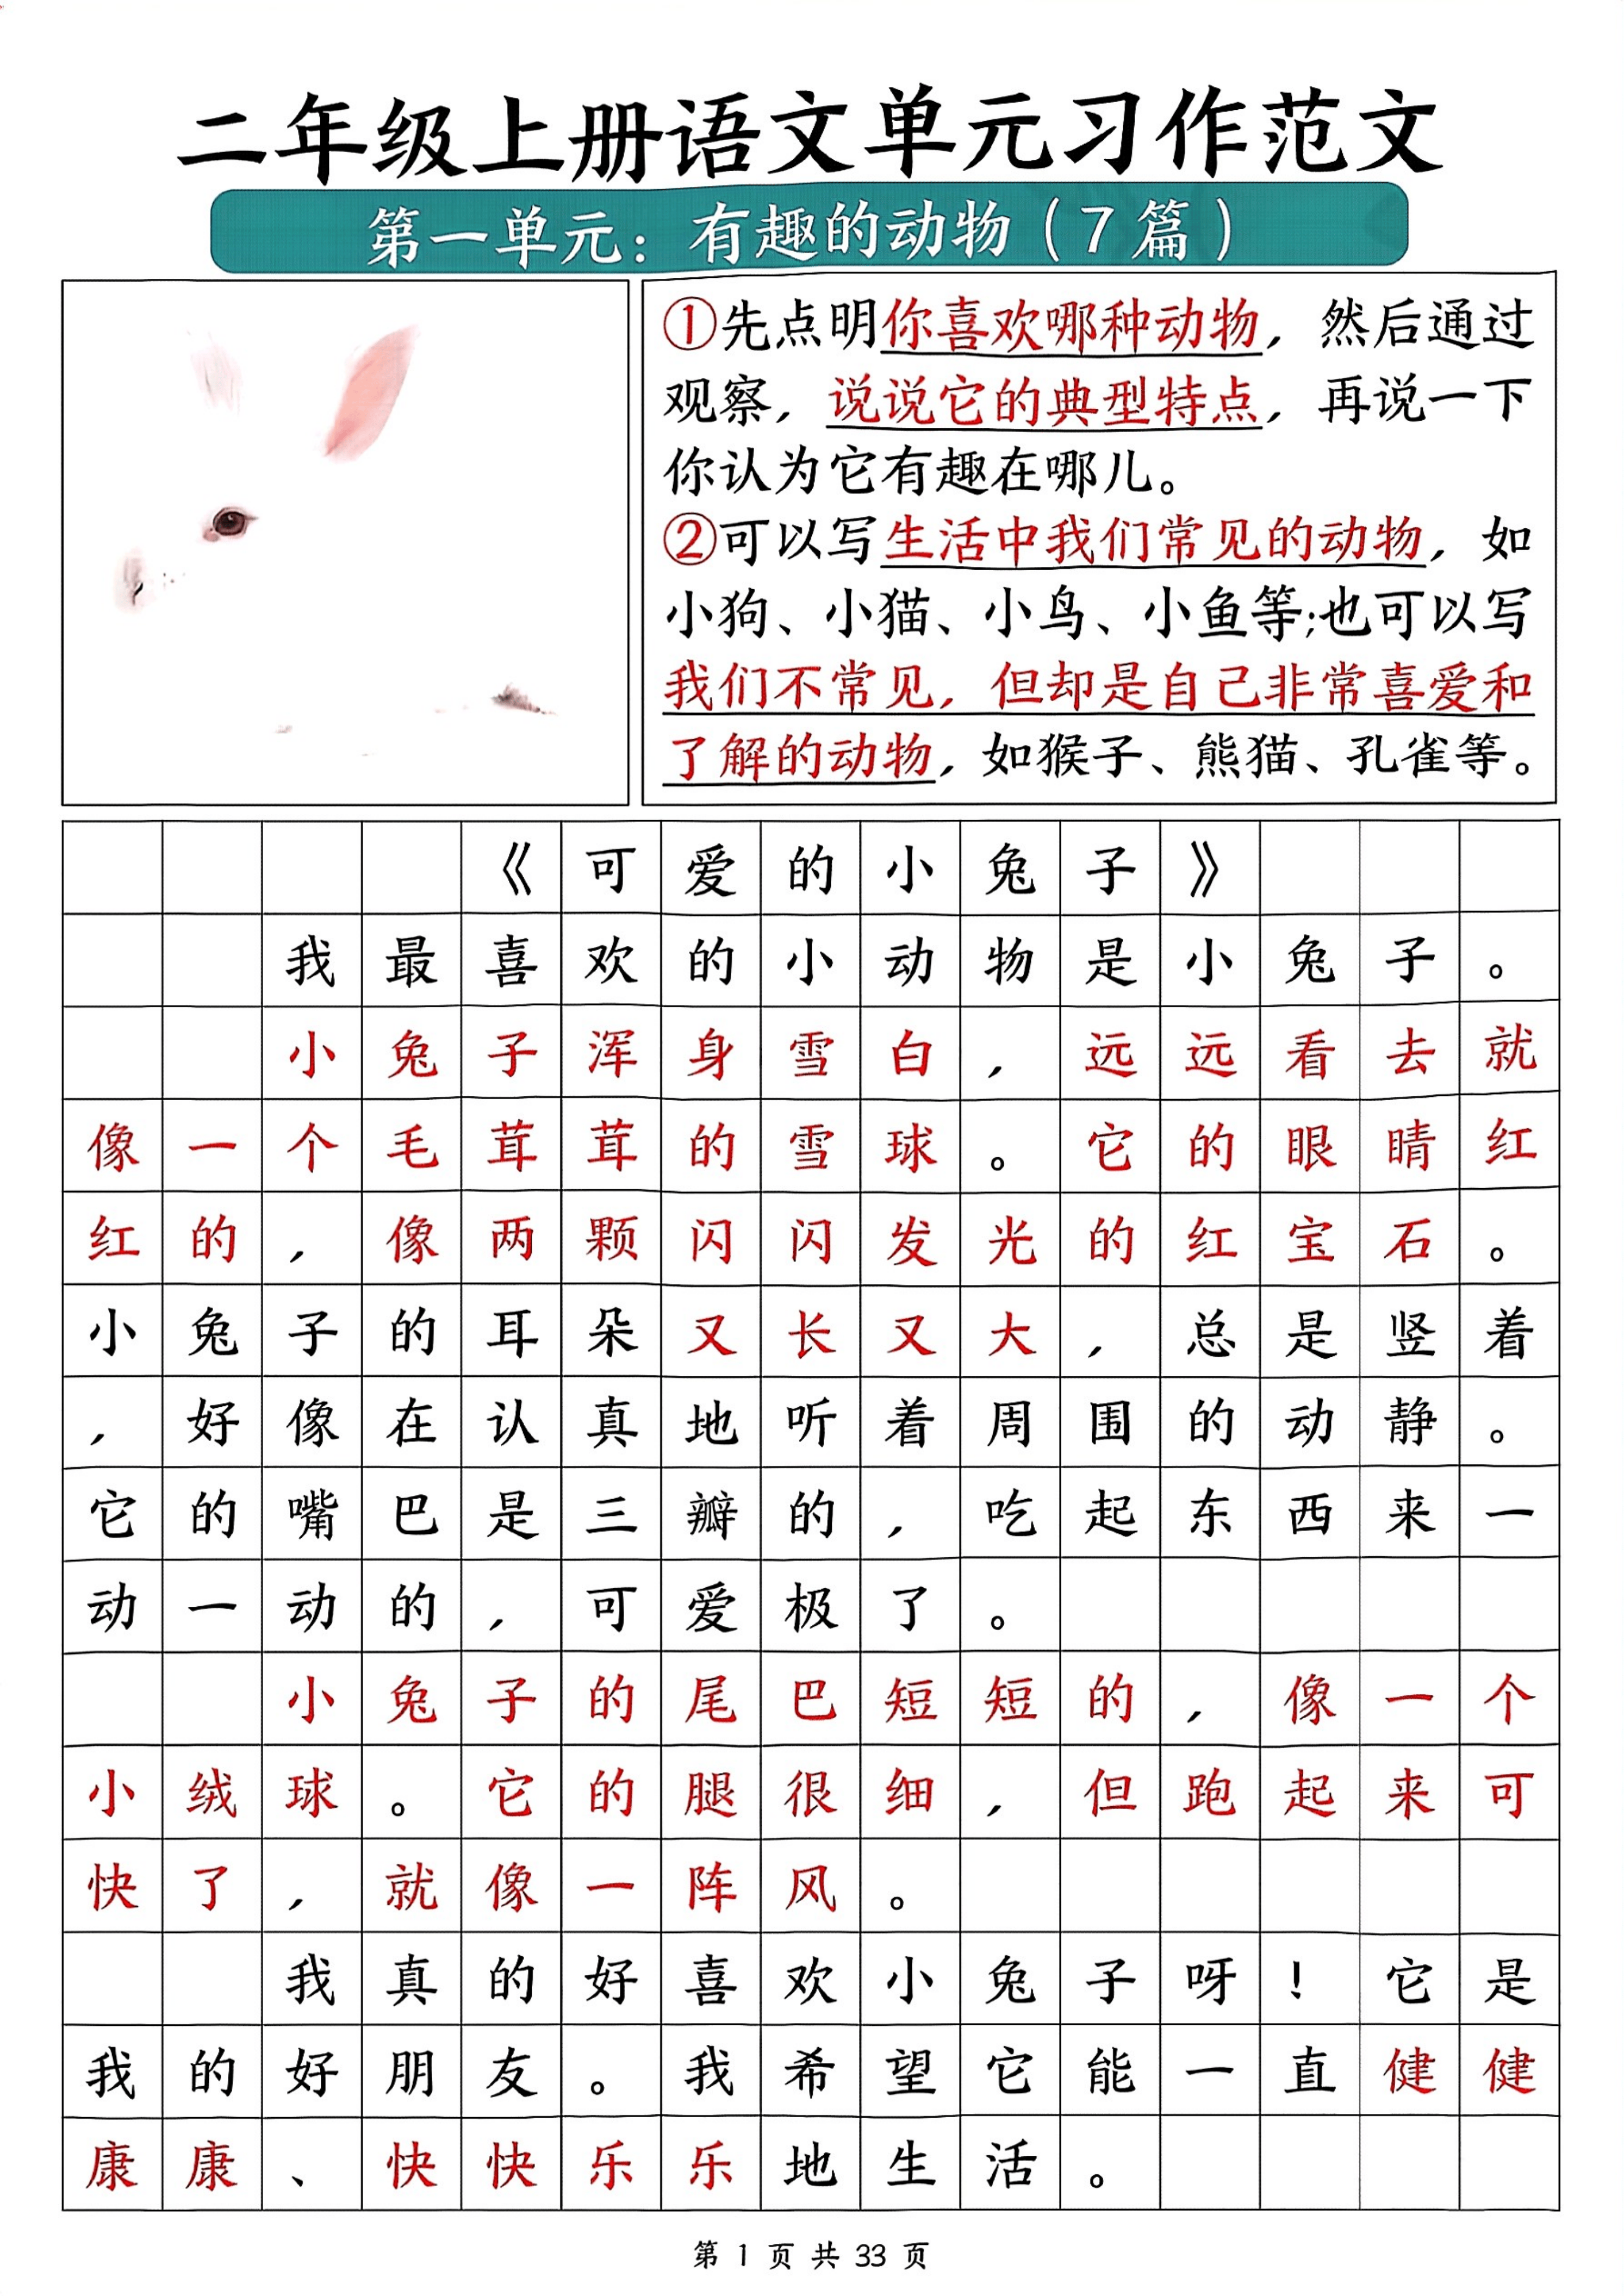 二年级上册语文单元习作范文
第一单元：有趣的动物（7篇）
①先点明你喜欢哪种动物，然后通过
观察，说说它的典型特点，再说一下
你认为它有趣在哪儿。
②可以写生活中我们常见的动物，如
小狗、小猫、小鸟、小鱼等;也可以写
我们不常见，但却是自己非常喜爱和
了解的动物，如猴子、熊猫、孔雀等。
《可爱的小兔子》
我最喜欢的小动物是小兔子。
小兔子浑身雪白，远远看去就
像一个毛茸茸的雪球。它的眼睛红
红的，像两颗闪闪发光的红宝石。
小兔子的耳朵又长又大，总是竖着
，好像在认真地听着周围的动静。
它的嘴巴是三瓣的，吃起东西来一
动一动的，可爱极了。
小兔子的尾巴短短的，像一个
小绒球。它的腿很细，但跑起来可
快了，就像一阵风。
我真的好喜欢小兔子呀！它是
我的好朋友。我希望它能一直健健
康康、快快乐乐地生活。
第 1 页 共 33 页